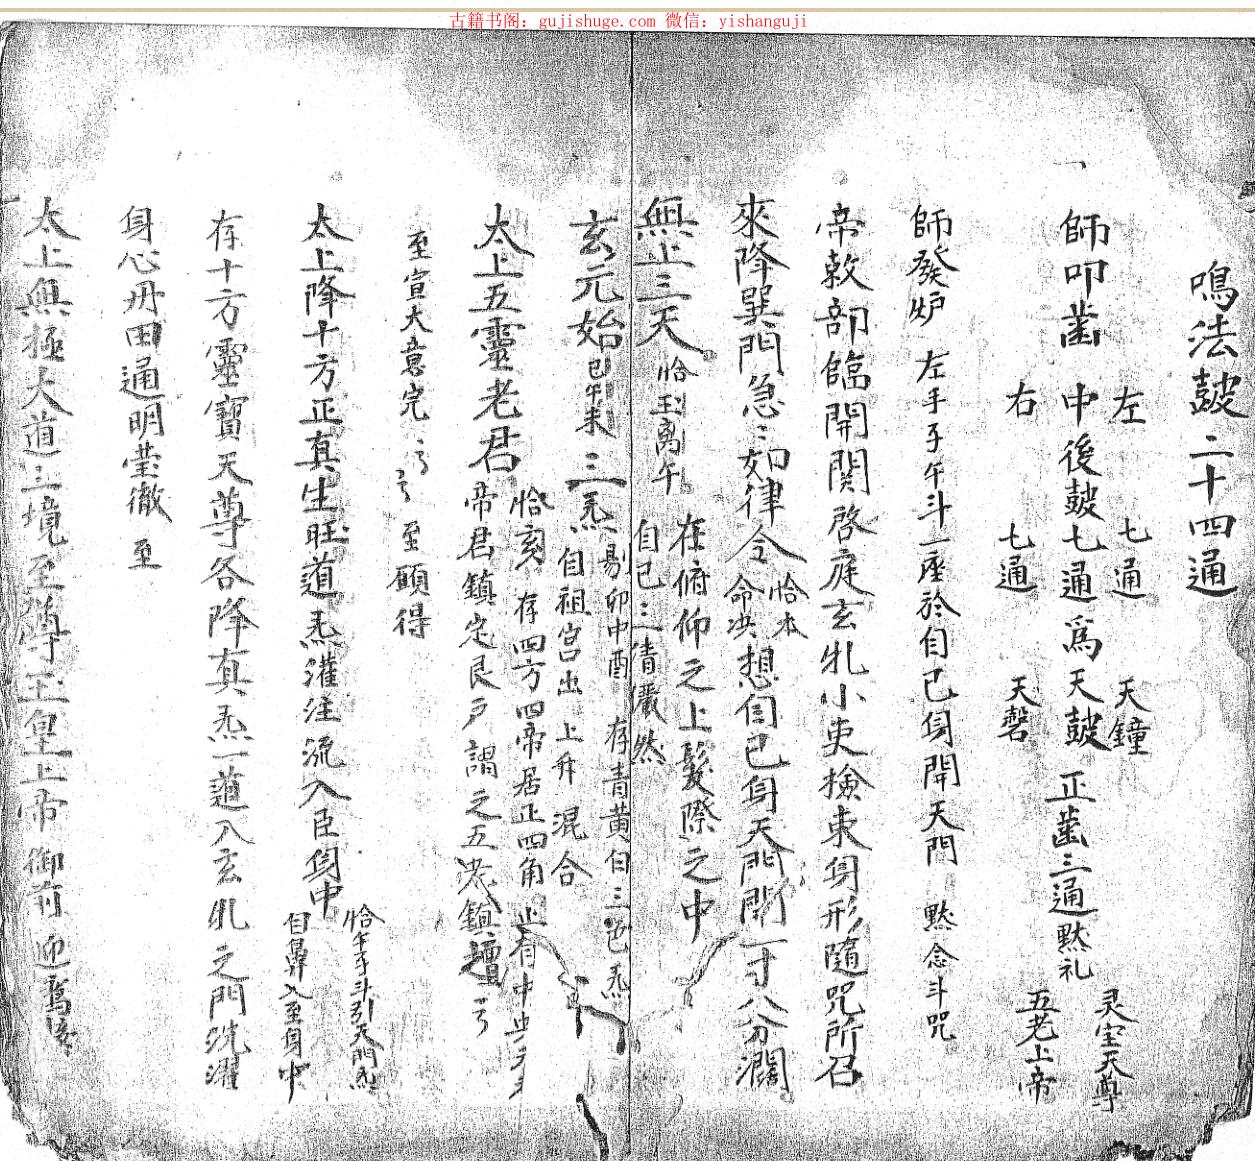 古籍书阁：gujishuge.com 微信：yishanguji
鳴法鼓二十四通
左 七通 天鐘 灵宝天尊
師叩齒 中後鼓七通為天鼓 正齒三通默礼
右 七通 天磬 五老上帝
師發炉 左手子午斗一座於自己身開天門 默念斗咒
帝敕部臨開關啓庭玄牝小吏撿束身形隨咒所召
來降巽門急〻如律令
恰本
命决
想自己身天門開一寸八分濶
無上三天
恰玉离午
在俯仰之上髮際之中
自己三清儼然
玄元始
巳午未
三炁
卯中酉 存青黄白三色炁
自祖宮出 上升 混合
太上五靈老君
恰亥 存四方四帝居正四角 止有中央
帝君鎮定艮户謂之五老鎮壇
至宣大意完 至願得
太上降十方正真生旺道炁灌注流入臣身中
恰午子斗引天門炁
自鼻入至身中
存十方靈寶天尊各降真炁一道入玄牝之門洗濯
身心丹田通明莹徹 至
太上無極大道三境至尊玉皇上帝 御前 迎鸞接